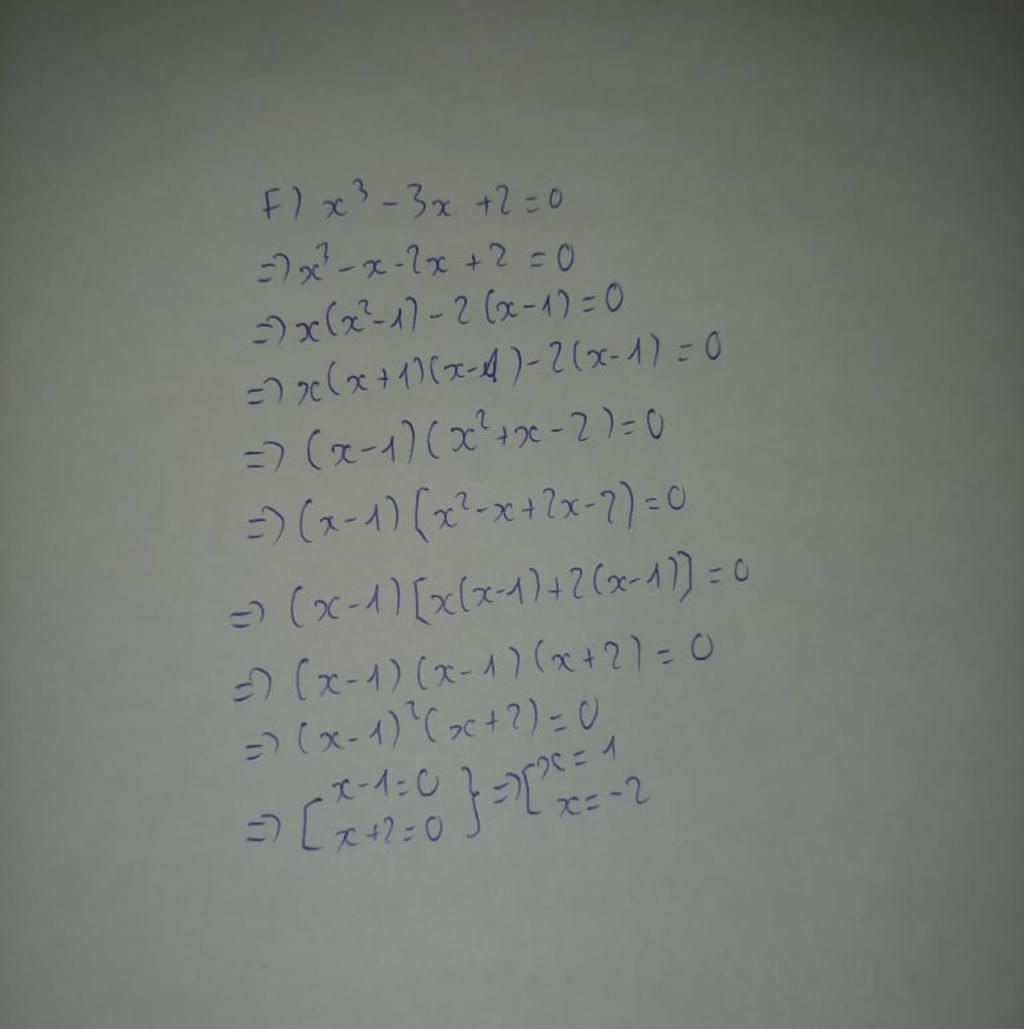 F) x³ - 3x + 2 = 0
=> x³ - x - 2x + 2 = 0
=> x(x² - 1) - 2(x - 1) = 0
=> x(x + 1)(x - 1) - 2(x - 1) = 0
=> (x - 1)(x² + x - 2) = 0
=> (x - 1)[x² - x + 2x - 2] = 0
=> (x - 1)[x(x - 1) + 2(x - 1)] = 0
=> (x - 1)(x - 1)(x + 2) = 0
=> (x - 1)²(x + 2) = 0
=> [ x - 1 = 0 } => [ x = 1
x + 2 = 0 x = -2